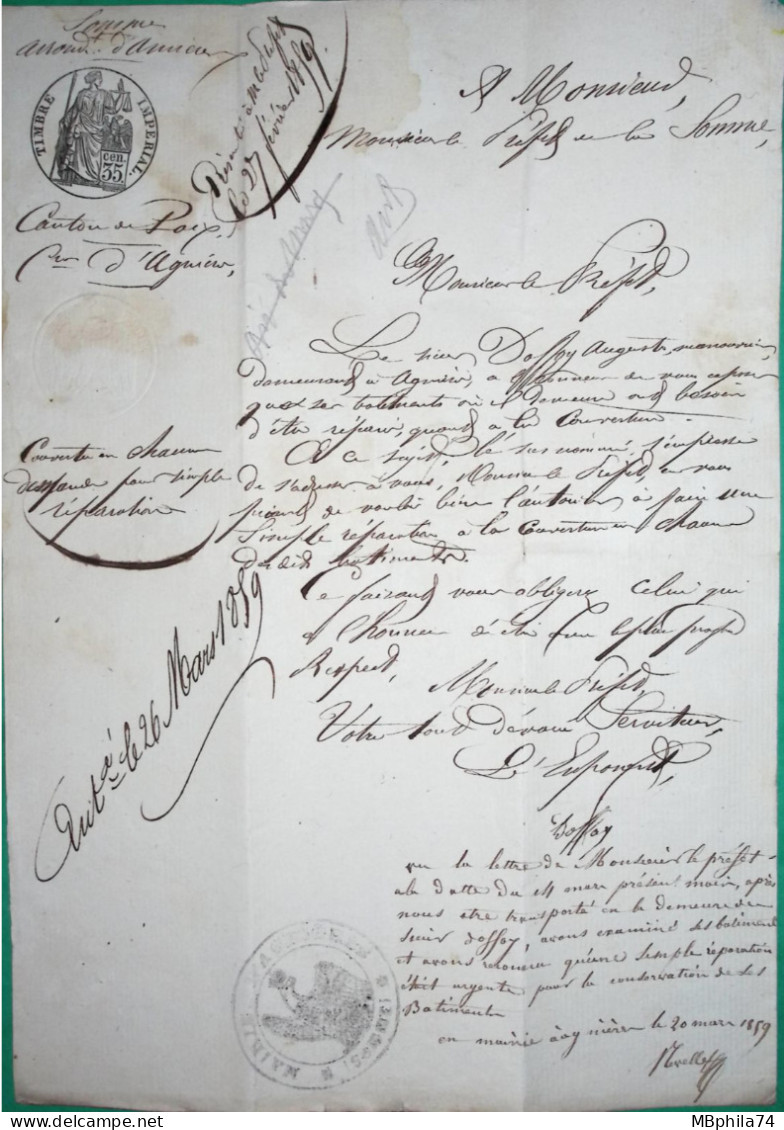 Somme
arrond.t d'Amiens
TIMBRE IMPÉRIAL.
35 cen.
Présenté à M. le Préfet
le 27 février 1859
A Monsieur,
Monsieur le Préfet de la Somme,
Canton de Poix,
C.ne d'Agnières,
Monsieur le Préfet,
Le sieur Dossoy Auguste, manouvrier,
demeurant à Agnières, a l'honneur de vous exposer
que ses batiments où il demeure ont besoin
d'être réparés, quant à la Couverture.
A ce sujet, le susnommé s'empresse
de s'adresser à vous, Monsieur le Préfet, en vous
priant de vouloir bien l'autoriser à faire une
simple réparation à la couverture en chaume
desdits batiments.
Couverture en chaume
demande pour simple
réparation
Ce faisant vous obligerez celui qui
a l'honneur d'être avec le plus profond
Respect,
Monsieur le Préfet,
Votre tout dévoué Serviteur,
L'Exposant,
Dossoy
le 26 Mars 1859
vu la lettre de Monsieur le préfet
à la datte du 14 mars présent mois, après
nous etre transporté en la demeure du
sieur dossoy, avons examiné ses batiment
et avons reconnu qu'une semple réparation
était urgente pour la conservation de ses
Batiments
en mairie à agnières le 20 mars 1859
MAIRIE
MBphila74